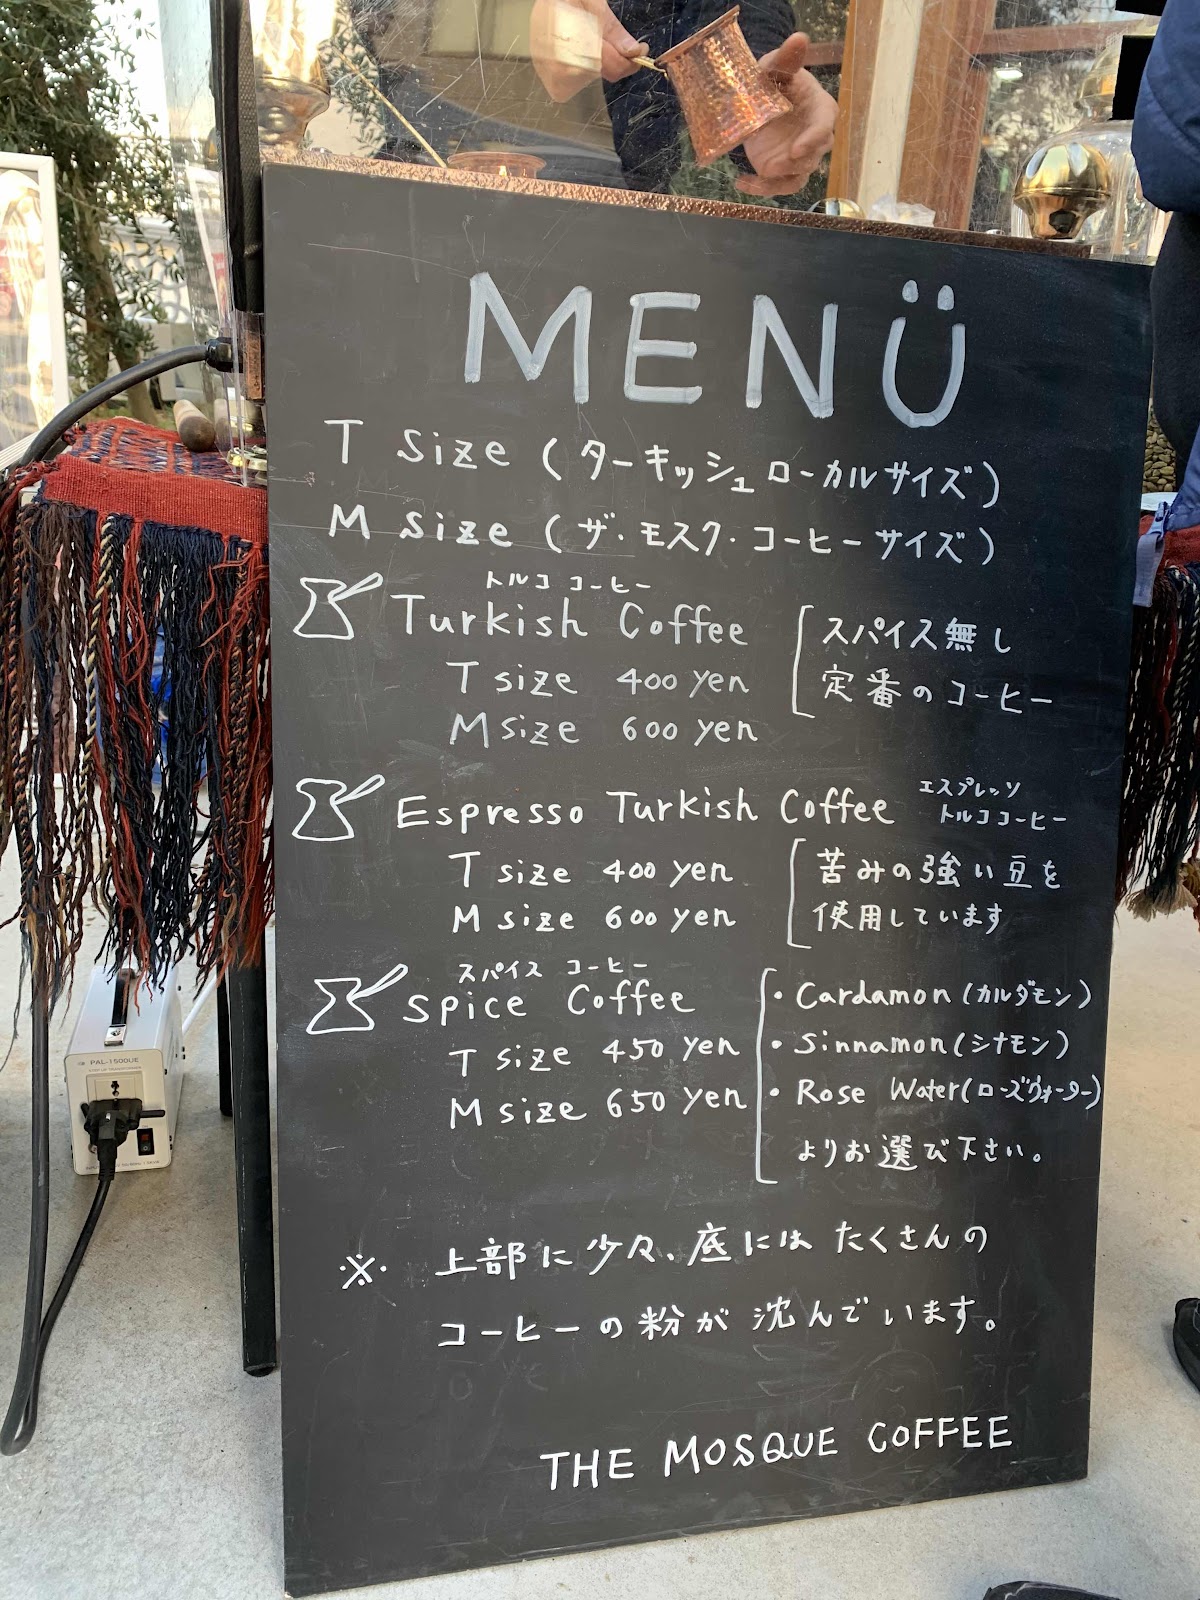 MENÜ
T size (ターキッシュローカルサイズ)
M size (ザ・モスク・コーヒーサイズ)
トルココーヒー
Turkish Coffee
T size 400 yen
M size 600 yen
スパイス無し
定番のコーヒー
Espresso Turkish Coffee
エスプレッソ
トルココーヒー
T size 400 yen
M size 600 yen
苦みの強い豆を
使用しています
スパイス コーヒー
Spice Coffee
T size 450 yen
M size 650 yen
・Cardamon (カルダモン)
・Sinnamon (シナモン)
・Rose Water (ローズウォーター)
よりお選び下さい。
※ 上部に少々、底にはたくさんの
コーヒーの粉が沈んでいます。
THE MOSQUE COFFEE
PAL-1500UE